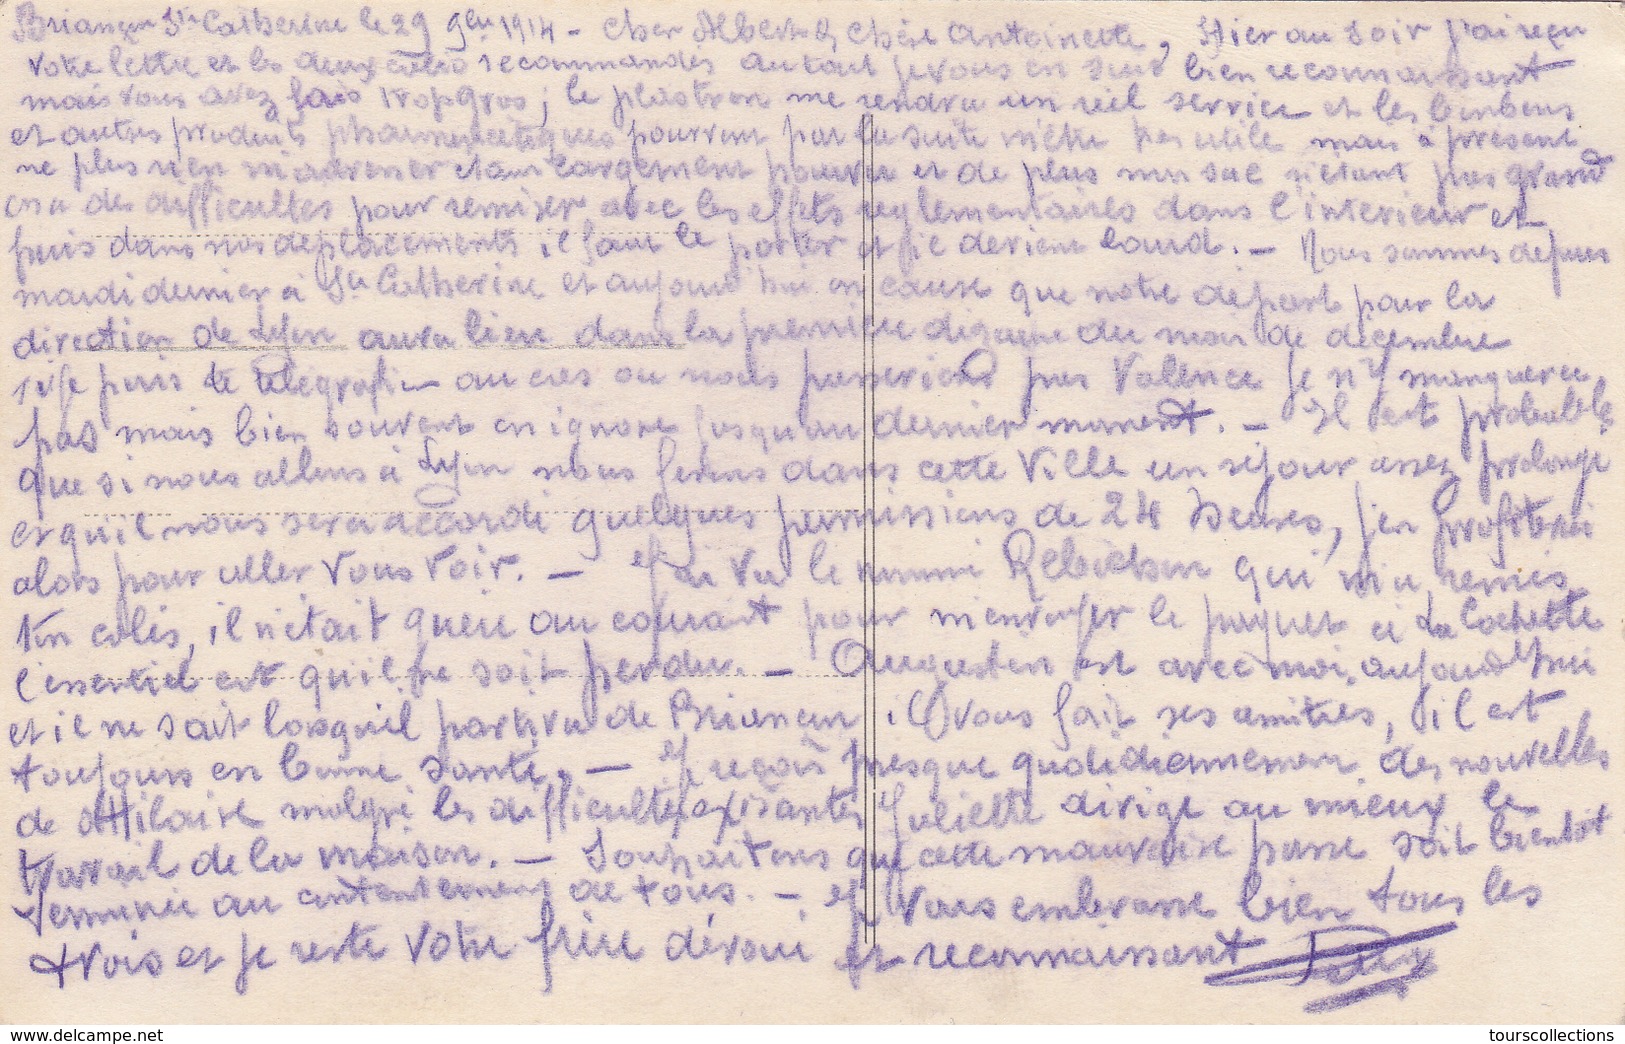 Briançon Ste Catherine le 29 9bre 1914 - Cher Albert & chère Antoinette, Hier au soir j'ai reçu
votre lettre et les deux colis recommandés au tout je vous en suis bien reconnaissant
mais vous avez fais trop gros; le plastron me rendra un réel service et les bonbons
et autres produits pharmaceutiques pourront par la suite m'être très utile mais à présent
ne plus rien m'adresser étant largement pourvu et de plus mon sac n'étant pas grand
on a des difficultés pour remiser avec les effets réglementaires dans l'intérieur et
puis dans nos déplacements il faut le porter et il devient lourd. - Nous sommes depuis
mardi dernier à Ste Catherine et aujourd'hui on cause que notre départ pour la
direction de Lyon aura lieu dans la première dizaine du mois de décembre
si je puis te télégrafier au cas ou nous passerions par Valence je n'y manquerai
pas mais bien souvent on ignore jusqu'au dernier moment. - Il est probable
que si nous allons à Lyon nous ferons dans cette ville un séjour assez prolongé
et qu'il nous sera accordé quelques permissions de 24 heures, j'en profiterai
alors pour aller vous voir. - J'ai vu le nommé qui m'a remis
1 colis, il n'était guère au courant pour m'envoyer le paquet à La Cochette
l'essentiel est qu'il ne soit perdu. - Augustin est avec moi aujourd'hui
et il ne sait lorsqu'il partira de Briançon. Il vous fait ses amitiés, il est
toujours en bonne santé. - Je reçois presque quotidiennement des nouvelles
de St Hilaire malgré les difficultés existantes Juliette dirige au mieux le
travail de la maison. - Souhaitons que cette mauvaise passe soit bientôt
terminée au contentement de tous. - Je vous embrasse bien tous les
trois et je reste votre frère dévoué et reconnaissant
www.delcampe.net
tourscollections